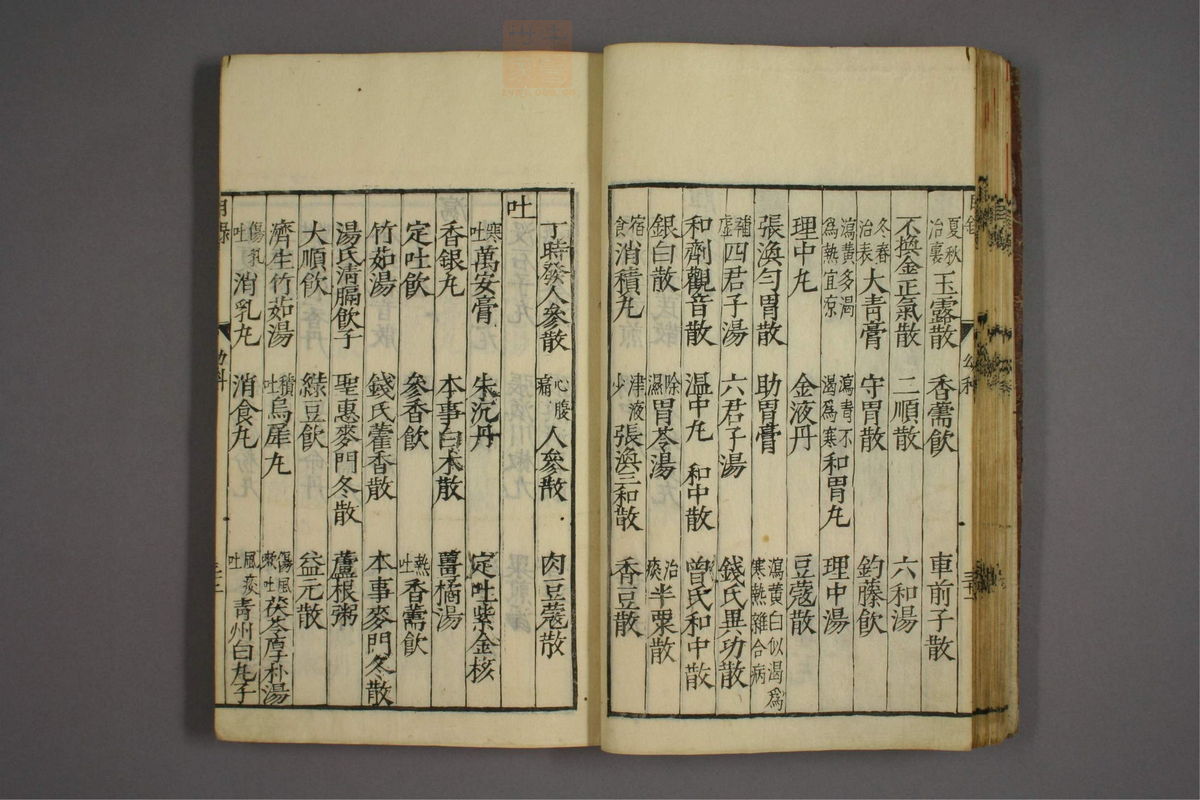 夏秋治裏 玉露散 香薷飲 車前子散
不換金正氣散 二順散 六和湯
冬春治表 大青膏 守胃散 釣藤飲
瀉黃多渴爲熱宜涼 瀉青不渴爲寒 和胃丸 理中湯
理中丸 金液丹 豆蔻散
張渙勻胃散 助胃膏 瀉黃白似渴爲寒熱雜合病
補虛 四君子湯 六君子湯 錢氏異功散
和劑觀音散 温中丸 和中散 曾氏和中散
銀白散 除濕 胃苓湯 治痰 半粟散
宿食 消積丸 津液少 張渙三和散 香豆散
丁時發人參散 心腹痛 人參散 肉豆蔻散
吐
寒吐 萬安膏 朱沉丹 定吐紫金核
香銀丸 本事白术散 薑橘湯
定吐飲 參香飲 熱吐 香薷飲
竹茹湯 錢氏藿香散 本事麥門冬散
湯氏清膈飲子 聖惠麥門冬散 蘆根粥
大順飲 綠豆飲 益元散
濟生竹茹湯 積吐 烏犀丸 傷風嗽吐 茯苓厚朴湯
傷乳吐 消乳丸 消食丸 風痰吐 青州白丸子
目錄 幼科